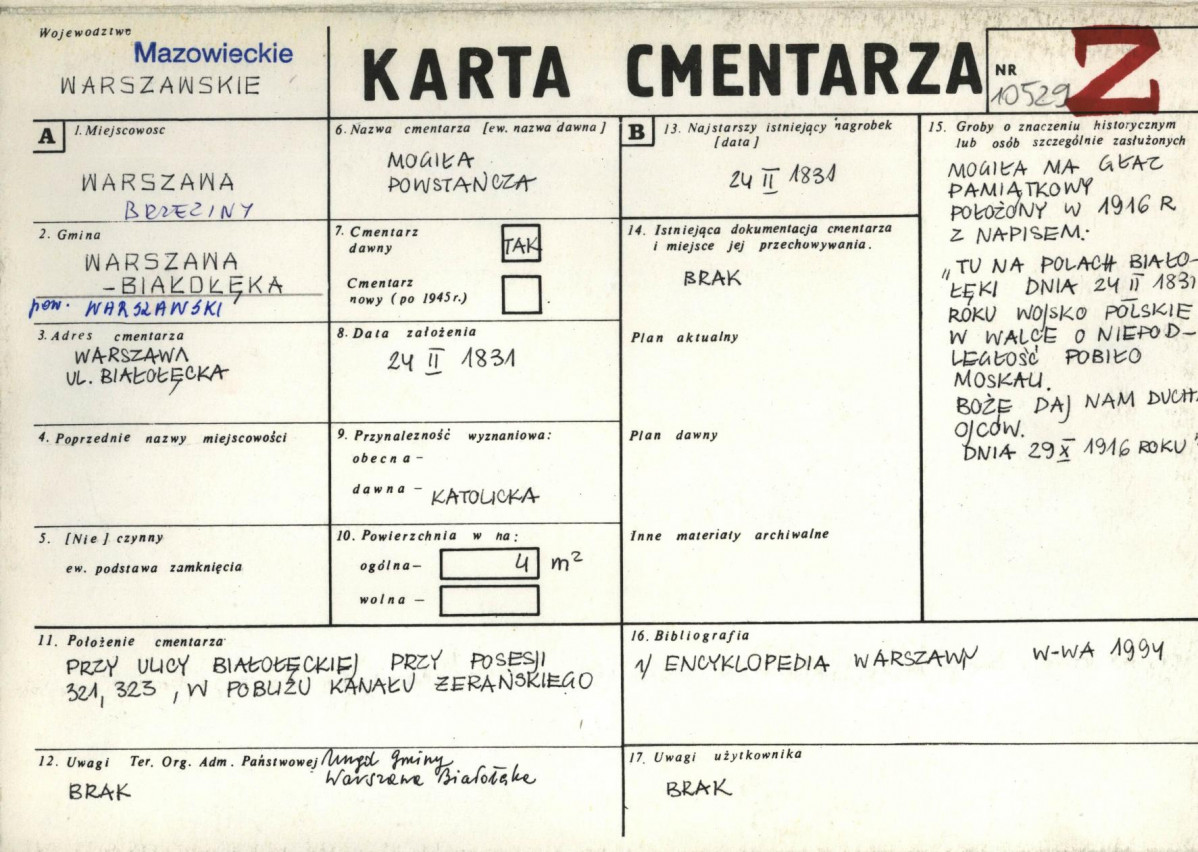 Wojewodztwo
Mazowieckie
WARSZAWSKIE
KARTA CMENTARZA
NR
10529
Z
A
1. Miejscowosc
WARSZAWA
BRZEZINY
2. Gmina
WARSZAWA
-BIAŁOŁĘKA
pow. WARSZAWSKI
3. Adres cmentarza
WARSZAWA
UL. BIAŁOŁĘCKA
4. Poprzednie nazwy miejscowości
5. [Nie] czynny
ew. podstawa zamknięcia
6. Nazwa cmentarza [ew. nazwa dawna]
MOGIŁA
POWSTAŃCZA
7. Cmentarz
dawny
TAK
Cmentarz
nowy (po 1945 r.)
8. Data założenia
24 II 1831
9. Przynależność wyznaniowa:
obecna –
dawna – KATOLICKA
10. Powierzchnia w ha:
ogólna – 4 m²
wolna –
11. Położenie cmentarza
PRZY ULICY BIAŁOŁĘCKIEJ PRZY POSESJI
321, 323, W POBLIŻU KANAŁU ŻERAŃSKIEGO
12. Uwagi Ter. Org. Adm. Państwowej Urząd Gminy
Warszawa Białołęka
BRAK
B
13. Najstarszy istniejący nagrobek
[data]
24 II 1831
14. Istniejąca dokumentacja cmentarza
i miejsce jej przechowywania.
BRAK
Plan aktualny
Plan dawny
Inne materiały archiwalne
15. Groby o znaczeniu historycznym
lub osób szczególnie zasłużonych
MOGIŁA MA GŁAZ
PAMIĄTKOWY
POŁOŻONY W 1916 R
Z NAPISEM:
„TU NA POLACH BIAŁO-
ŁĘKI DNIA 24 II 1831
ROKU WOJSKO POLSKIE
W WALCE O NIEPOD-
LEGŁOŚĆ POBIŁO
MOSKALI.
BOŻE DAJ NAM DUCHA
OJCÓW.
DNIA 29 X 1916 ROKU"
16. Bibliografia
1/ ENCYKLOPEDIA WARSZAWY W-WA 1994
17. Uwagi użytkownika
BRAK